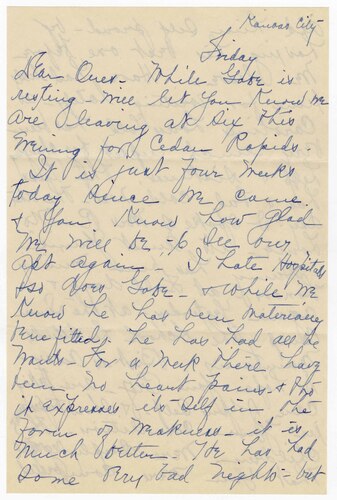 Kansas City
Friday
Dear Ones - While Gabe is
resting - will let you know we
are leaving at six this
evening for Cedar Rapids.
It is just four weeks
today since we came
& you know how glad
we will be to see our
apt again - I hate Hospitals
& so does Gabe - & while we
know he has been materially
benefitted, he has had all he
wants - For a week there have
been no heart pains - & tho
it expresses its self in the
form of weakness - it is
much better - He has had
some very bad nights - but